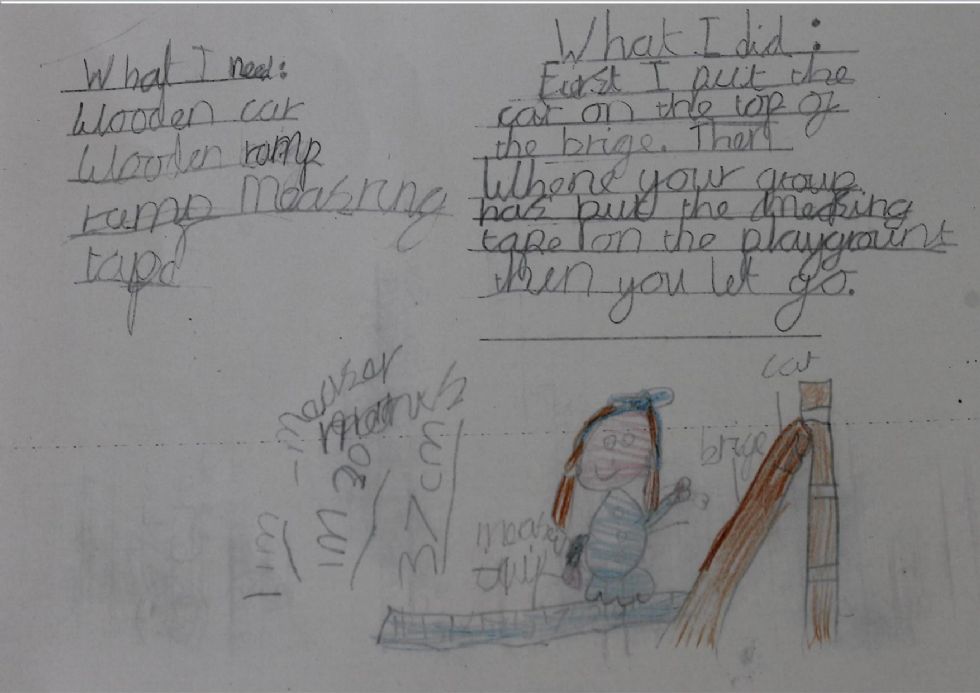 What I need:
Wooden car
Wooden ramp
ramp Measring
tape
What I did:
First I put the
car on the top of
the brige. Then
Where your group
has put the measing
tape on the playgrount
then you let go.
car
brige
37 cm